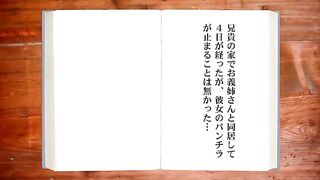 兄貴の家でお義姉さんと同居して
4日が経ったが、彼女のパンチラ
が止まることは無かった…